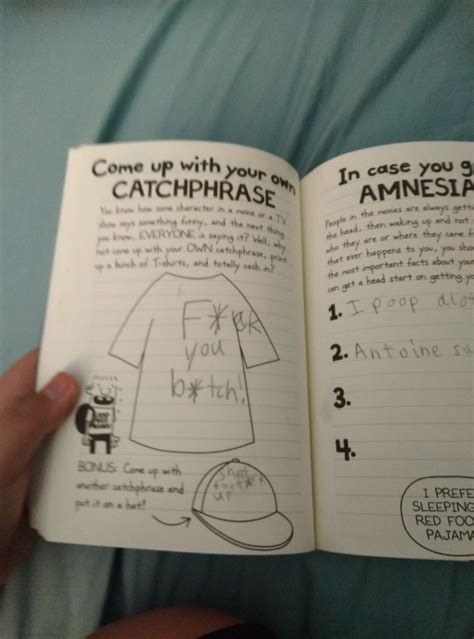 Come up with your own
CATCHPHRASE
You know how some character in a movie or a TV
show says something funny, and the next thing
you know, EVERYONE is saying it? Well, why
not come up with your OWN catchphrase, print
up a bunch of T-shirts, and totally cash in?
F*ck
you
b*tch!
BONUS: Come up with
another catchphrase and
put it on a hat!
up
In case you g
AMNESIA
People in the movies are always getti
the head, then waking up and not
who they are or where they came f
that ever happens to you, you sho
the most important facts about your
can get a head start on getting yo
1. I poop alot
2. Antoine su
3.
4.
I PREFE
SLEEPING
RED FOO
PAJAMA